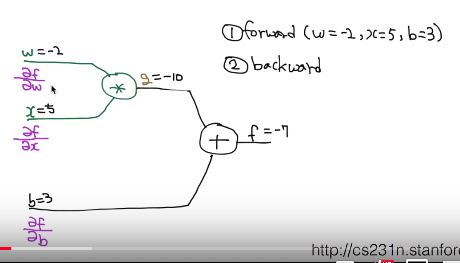 ① forward (w=-2, x=5, b=3)
② backward
w=-2
∂f/∂w
x=5
∂f/∂x
*
g=-10
+
f=-7
b=3
∂f/∂b
http://cs231n.stanfor